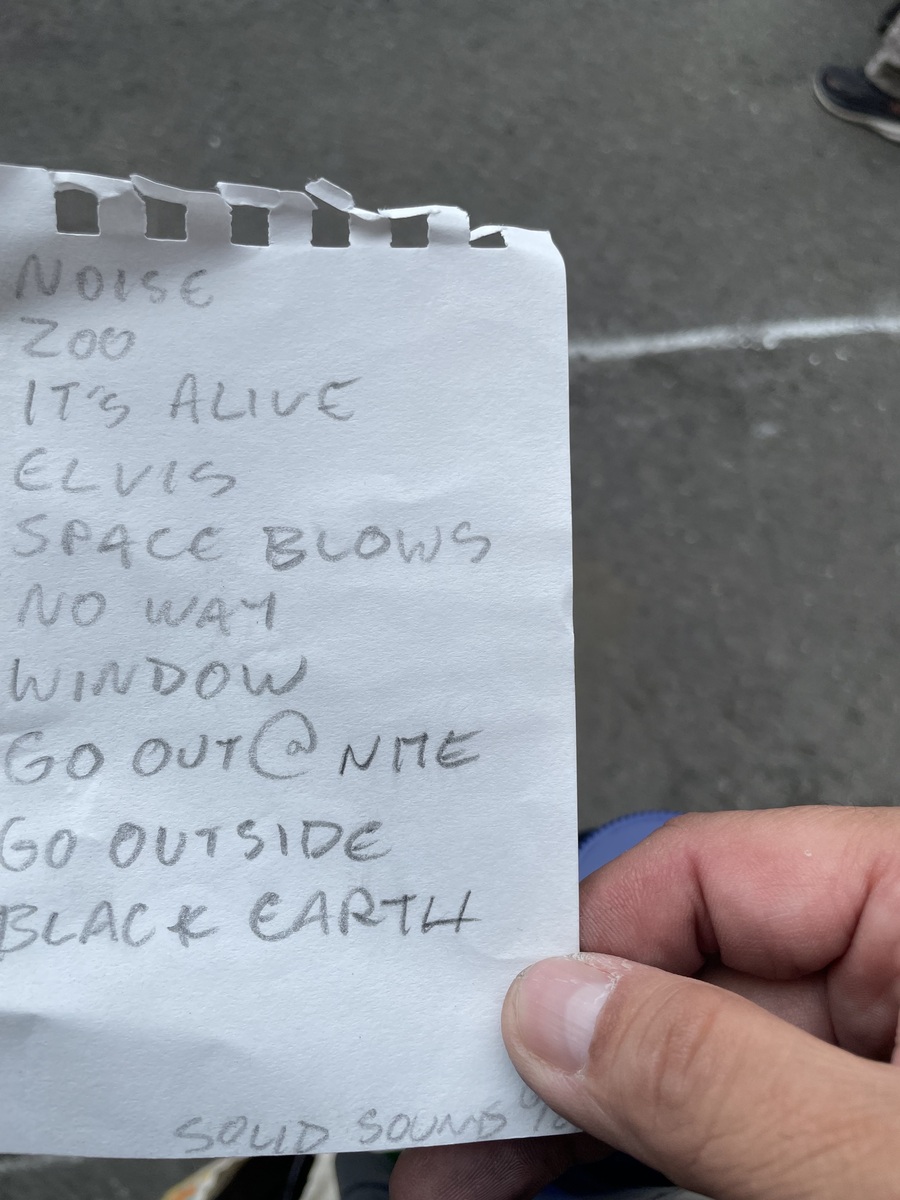 NOISE
ZOO
IT'S ALIVE
ELVIS
SPACE BLOWS
NO WAY
WINDOW
GO OUT @ NITE
GO OUTSIDE
BLACK EARTH
SOLID SOUND